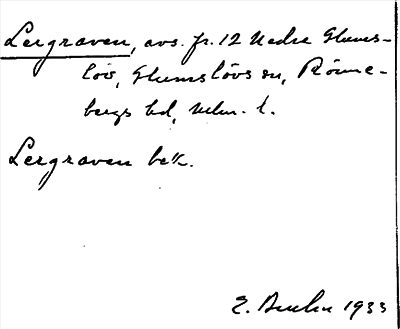 Lergraven, avs. fr. 12 Nedre Glums-
löv, Glumslövs sn, Rönne-
bergs hd, Malm. l.
Lergraven bek.
E. 1933